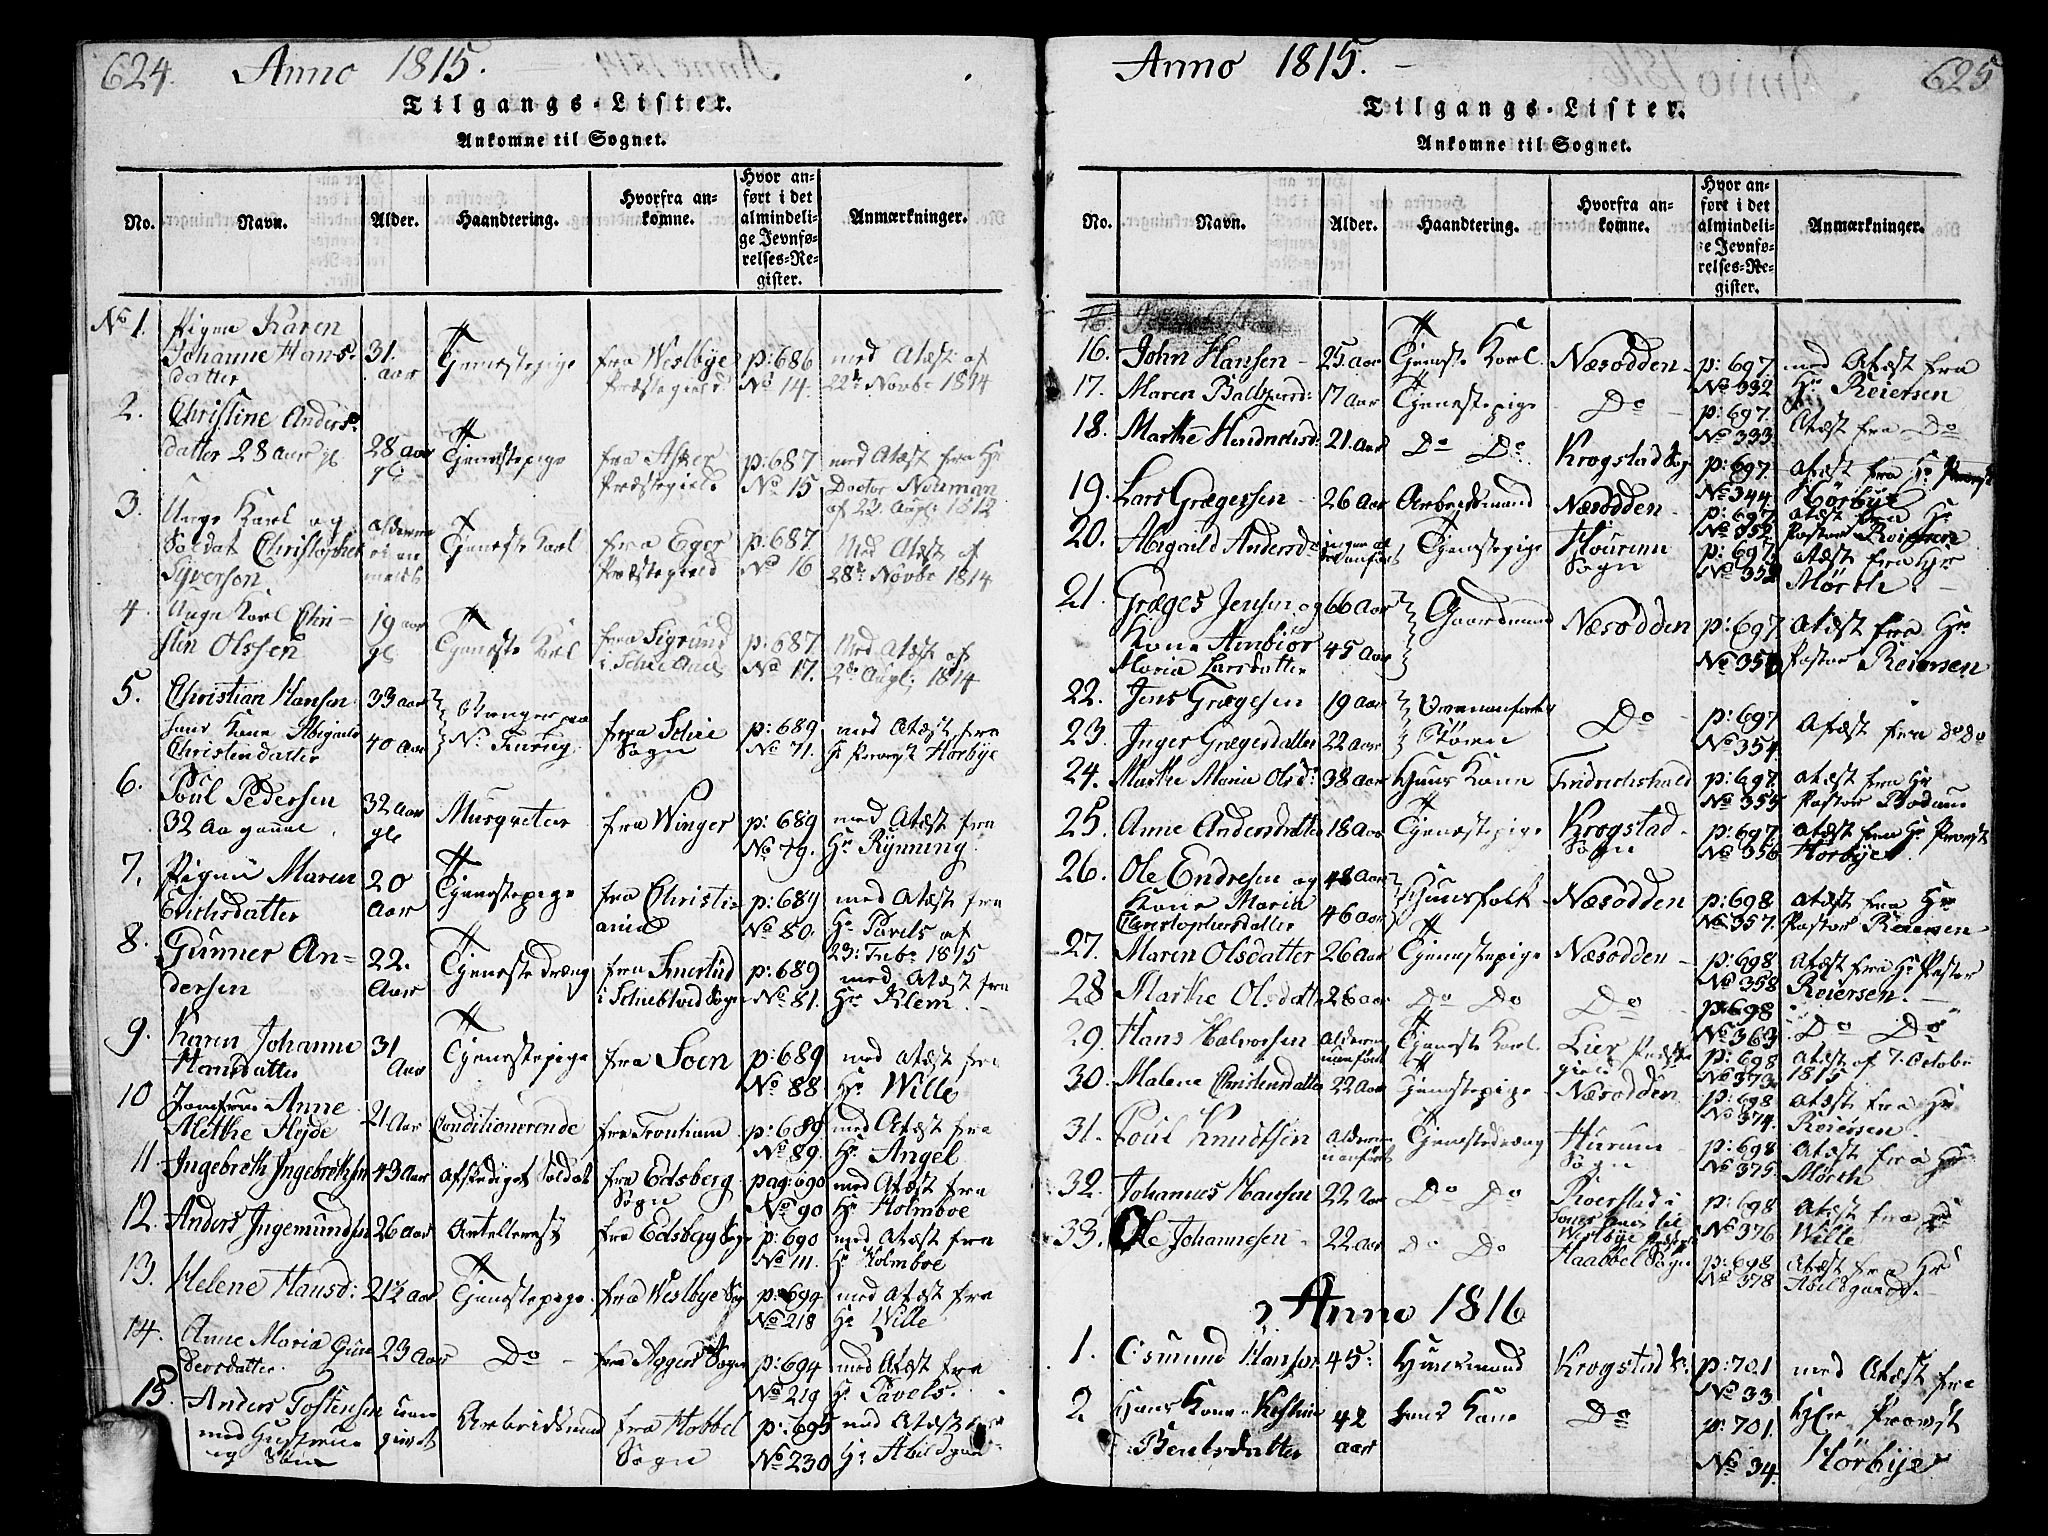 624. Anno 1815.
Tilgangs-Lister.
Ankomne til Sognet.
No. Navn. Alder. Haandtering. Hvorfra ankomne. Hvor anført i det almindelige Jevnførelses-Register. Anmærkninger.
No 1. Pigen Karen
Johanne Hans-
datter 31. aar Tjenestepige fra Westbye Præstegield p: 686 No 14. med Atæst af 22de Novbr 1814
2. Christine Anders-
datter 28 aar gl 28 aar gl. Tjenestepige fra Asker Præstegield p: 687 No 15 med Atæst fra Hr Doctor Neuman af 22 Augl: 1812
3. Unge Karl og
Soldat Christopher
Syverson Tjeneste Karl fra Eger Præstegield p: 687. No 16 Med Atæst af 28de Novbr 1814
4. Unge Karl Chri-
sten Olssen 19 aar gl. Tjeneste Karl p: 687. No 17. Med Atæst af 2de Augl: 1814
5. Christian Hansen 33 aar
hans Kone Abigael
Christendatter 40 aar fra Schie Sogn p: 689 No 71. med Atæst fra Hr Provst Hørbye
6. Poul Pedersen
32 Aar gammel 32 aar gl Musqveteer fra Winger p: 689 No 79. med Atæst fra Hr Rynning
7. Pigen Maren
Erichsdatter 20 Aar Tjenestepige fra Christiania p: 689 No 80. med Atæst fra Hr Pavels af 23: Febr 1815
8. Gunner An-
dersen 22. Aar Tjenestedreng p: 689 No 81. med Atæst fra Hr
9. Karen Johanne
Hansdatter 31 Aar Tjenestepige fra Soen p: 689 No 88 med Atæst fra Hr Wille
10 Jomfrue Anne
Alethe Hejde 21 Aar Conditionerende p: 689 No 89. med Atæst fra Hr Angel
11. Ingebreth Ingebrethsen 43 Aar Afskediget Soldat fra Edsberg Sogn No 90 med Atæst fra Hr Holmboe
12. Anders Ingemundsen 26 aar fra Edsberg Sogn p: 690 No 111. med Atæst fra Hr Holmboe
13. Helene Hansd: 21½ aar Tjenestepige fra Westbye Sogn p: 694 No 218 med Atæst fra Hr Wille
14. Anne Maria Gun
dersdatter 23 Aar Do fra Aggers Sogn p: 694 No 219 med Atæst fra Hr Pavels.
15. Anders Tostensen
med Hustrue
og Arbeidsmand fra Hobbel Sogn p: 695 No 230 med Atæst fra Hr Abildgaard
Anno 1815. 625
Tilgangs-Lister.
Ankomne til Sognet.
No. Navn. Alder. Haandtering. Hvorfra ankomne. Hvor anført i det almindelige Jevnførelses-Register. Anmærkninger.
16. John Hansen 25 aar Tjeneste Karl Næsodden p: 697. No 332 med Atæst fra Hr Reiersen
17. Maren 17 aar Tjenestepige Do p: 697. No 333. Atæst fra Do
18. Marthe 21. aar Do Do Krogstad Sogn p: 697. No 344 Atæst fra Hr Provst Hørbye
19. Lars Grægersen 26 aar Arbeidsmand Næsodden p: 697 No 352 Atæst fra Hr Pastor Reiersen
20. Abigaeld Andersd Tjenestepige Sogn p: 697. No Atæst fra Hr Mørch.
21. Græges Jensen og 66 aar Gaardmand Næsodden p: 697 Atæst fra Hr
Kone Ambior
Maria Larsdatter 45 Aar Pastor Reiersen
22. Jens Grægesen 19 aar Do p: 697 No 354. Atæst fra Do Do
23. Inger Grægesdatter 22 aar
24. Marthe Maria Olsd: 38 aar Huus Kone Fridrichstad p: 697. No 355 Atæst fra Hr Pastor
25. Anne Andersdatter 18 Aar Tjenestepige Krogstad Sogn p: 697 No 356 Atæst fra Hr Provst Hørbye
26. Ole Endresen og 48 Aar Huusfolk Næsodden p: 698 No 357. Atæst fra Hr
Kone Maria
Christophersdatter 46 aar Pastor Reiersen
27. Maren Olsdatter 26 aar Tjenestepige Næsodden p: 698 No 358 Atæst fra Hr Pastor Reiersen.
28 Marthe Olsdatter 26 aar Do Do Do p: 698 No 363 Do Do
29. Hans Halvorsen Tjeneste Karl Lier Præstegield p: 698 No 373. Atæst af 7 Octobr 1815
30. Malene Christensdatter 22 aar Tjenestepige Næsodden p: 698 No 374. Atæst fra Hr Reiersen.
31. Poul Knudtsen Tjenestedreng Hurum Sogn p: 698 No 375. Atæst fra Hr Mørch
32. Johannes Hansen 22 Aar Do Do p: 698 No 376 Atæst fra Wille
33. Ole Johannesen 22 aar Do Do Haabbel Sogn p: 698 No 378 Atæst fra Hr Abildgaard.
Anno 1816
1. Osmund Hansen 45: Huusmand Krogstad p: 701 No 33 med Atæst fra
2. Hans Kone Kirstine
Bentsdatter 42 aar hans Kone Do p: 701. No 34. Hr Provst Hørbye